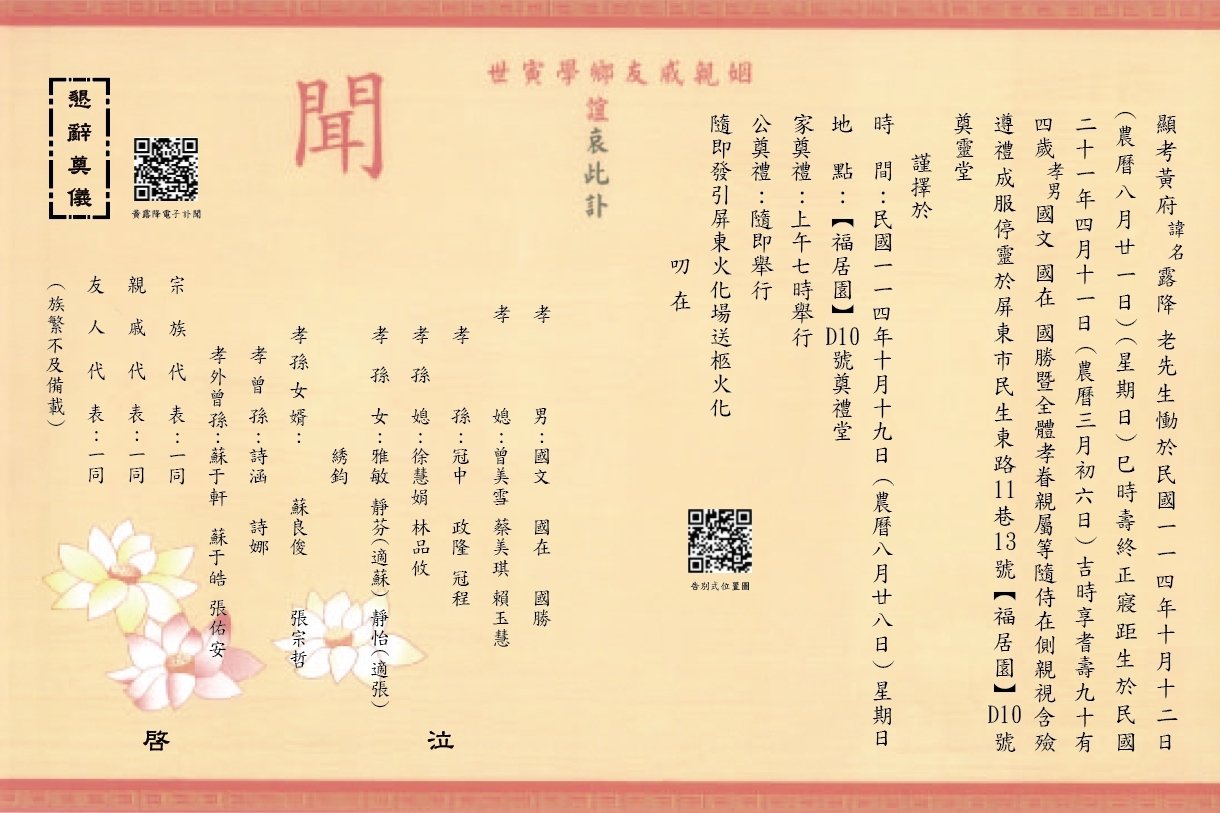 顯考黃府諱名露降 老先生慟於民國一一四年十月十二日
(農曆八月廿一日)(星期日)巳時壽終正寢距生於民國
二十一年四月十一日(農曆三月初六日)吉時享耆壽九十有
四歲孝男國文 國在 國勝暨全體孝眷親屬等隨侍在側親視含殮
遵禮成服停靈於屏東市民生東路11巷13號【福居園】D10號
奠靈堂
謹擇於
時 間:民國一一四年十月十九日(農曆八月廿八日)星期日
地 點:【福居園】D10號奠禮堂
家奠禮:上午七時舉行
公奠禮:隨即舉行
隨即發引屏東火化場送柩火化
叨在
告別式位置圖
姻親戚友鄉學寅世
誼
哀此訃
聞
孝 男:國文 國在 國勝
孝 媳:曾美雪 蔡美琪 賴玉慧
孝 孫:冠中 政隆 冠程
孝 孫 媳:徐慧娟 林品攸
孝 孫 女:雅敏 靜芬(適蘇) 靜怡(適張)
綉鈞
孝 孫 女 婿: 蘇良俊 張宗哲
孝 曾 孫:詩涵 詩娜
孝外曾孫:蘇于軒 蘇于皓 張佑安
宗 族 代 表:一同
親 戚 代 表:一同
友 人 代 表:一同
(族繁不及備載)
泣
啓
黃露降電子訃聞
懇辭奠儀